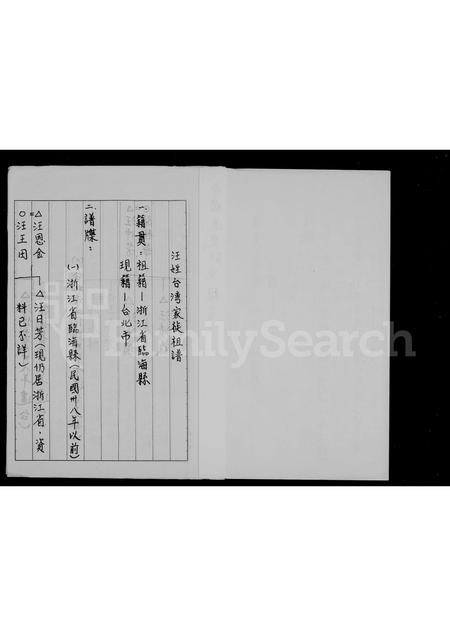 汪姓台湾家徙祖譜
一、籍貫：祖籍—浙江省臨海縣
現籍—台北市
二、譜牒：
(一)浙江省臨海縣(民國卅八年以前)
△汪恩金
△汪日芳(現仍居浙江省，資料已不詳)
○汪王田
FamilySearch